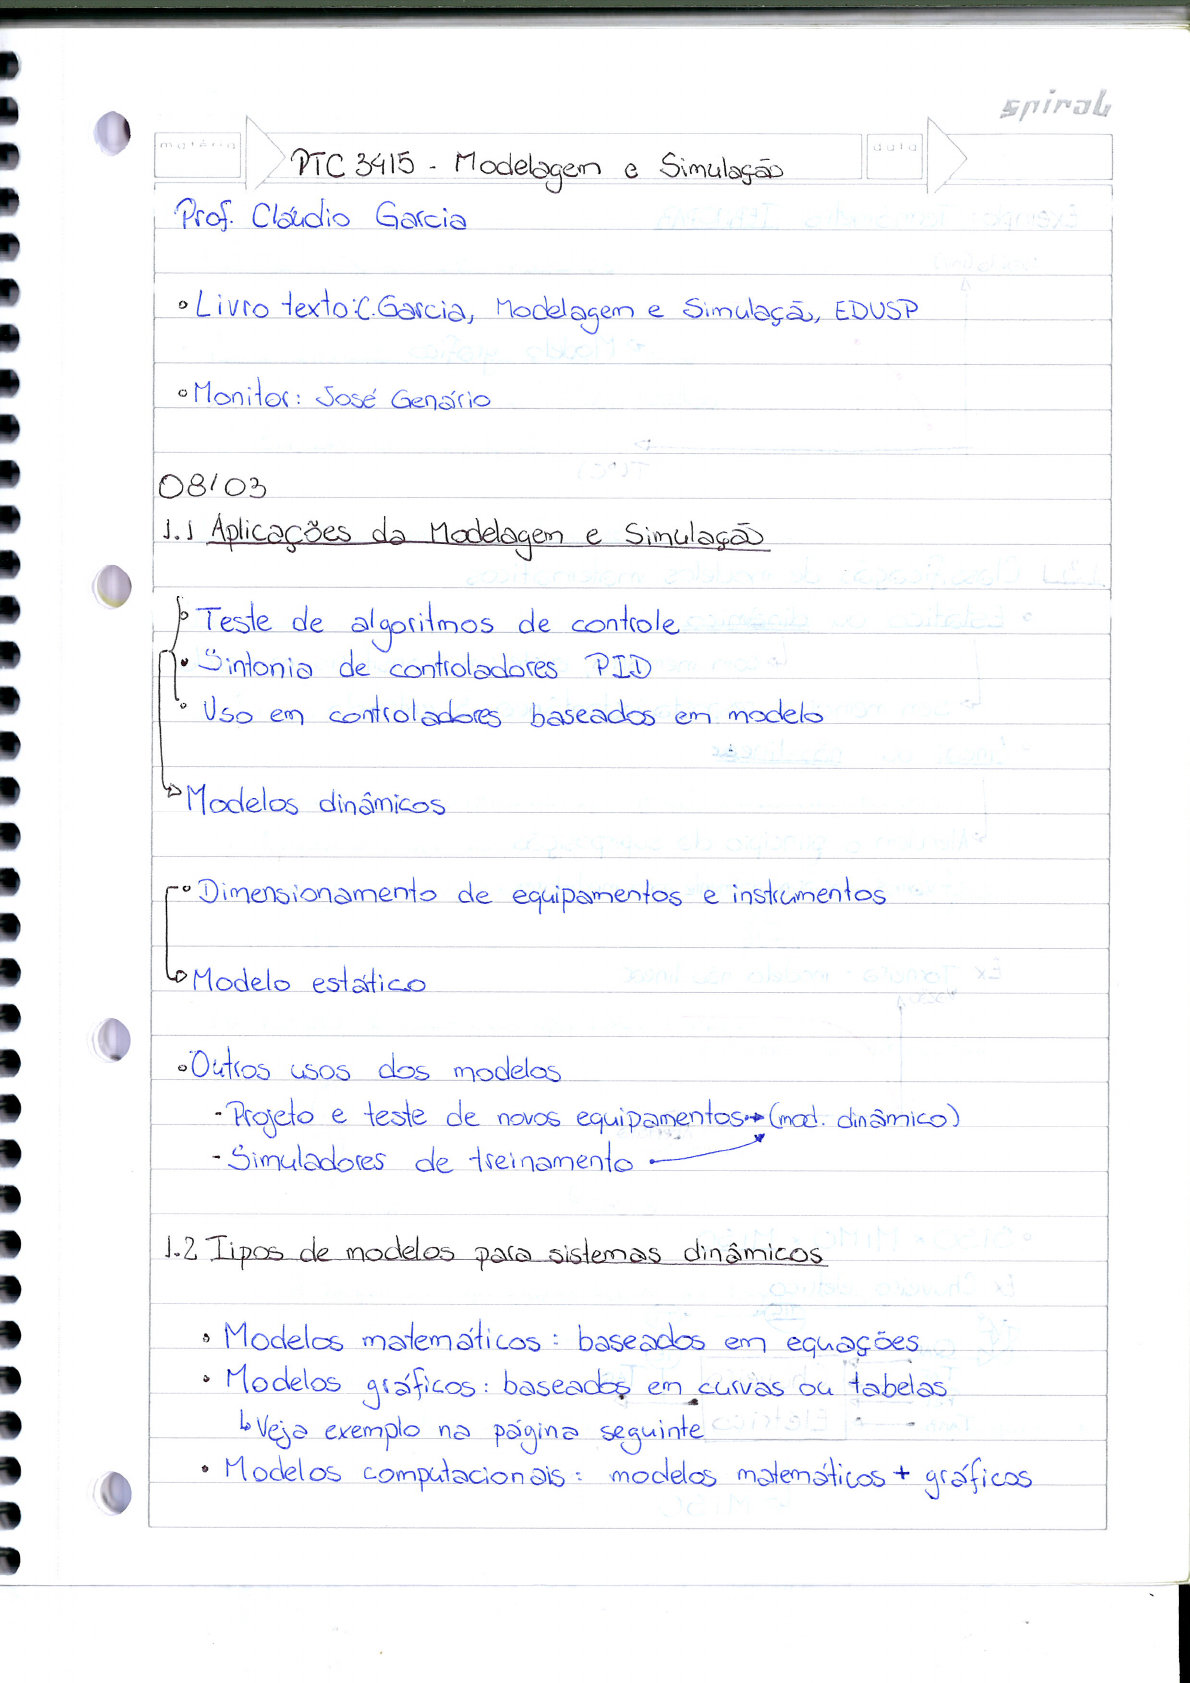 spiral
matéria
data
PTC 3415 - Modelagem e Simulação
Prof. Cláudio Garcia
• Livro texto: C. Garcia, Modelagem e Simulação, EDUSP
• Monitor: José Genário
08/03
1.1 Aplicações da Modelagem e Simulação
• Teste de algoritmos de controle
• Sintonia de controladores PID
• Uso em controladores baseados em modelo
→ Modelos dinâmicos
• Dimensionamento de equipamentos e instrumentos
→ Modelo estático
• Outros usos dos modelos
- Projeto e teste de novos equipamentos → (mod. dinâmico)
- Simuladores de treinamento
1.2 Tipos de modelos para sistemas dinâmicos
• Modelos matemáticos: baseados em equações
• Modelos gráficos: baseados em curvas ou tabelas
↳ Veja exemplo na página seguinte
• Modelos computacionais: modelos matemáticos + gráficos